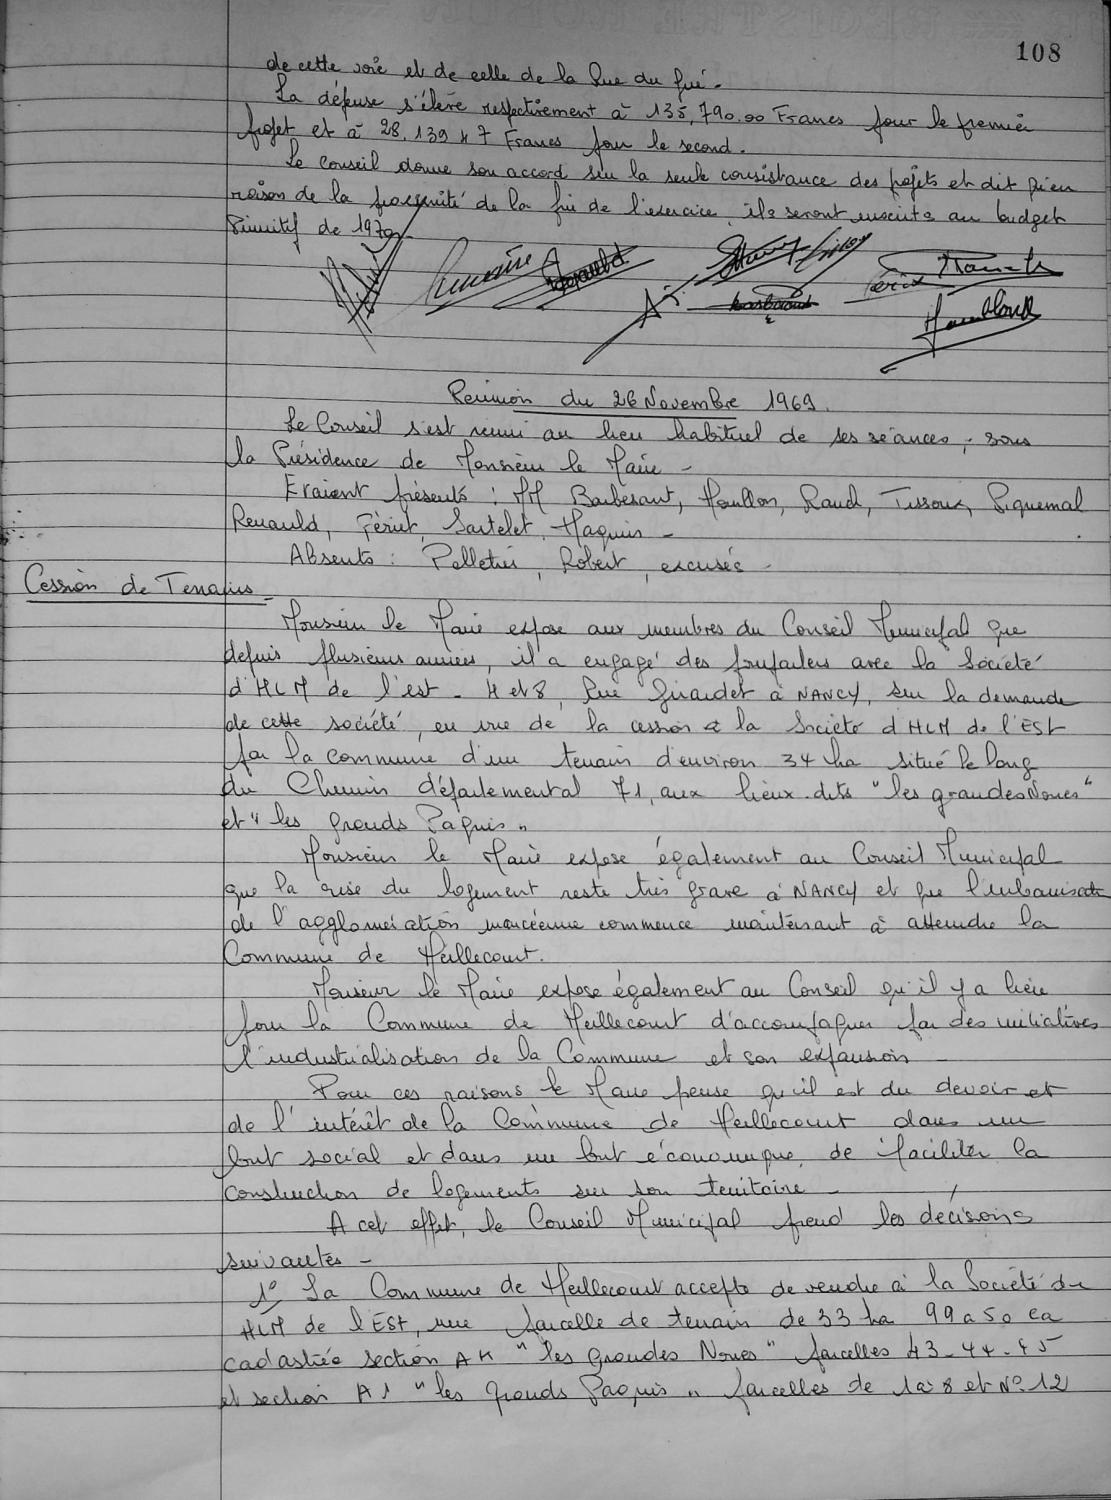 108
de cette voie et de celle de la Rue du Pré.
La dépense s'élève respectivement à 135,790.00 Francs pour le premier
projet et à 28,139 47 Francs pour le second.
Le Conseil donne son accord sur la seule consistance des projets et dit qu'en
raison de la proximité de la fin de l'exercice, ils seront inscrits au budget
Primitif de 1970
Réunion du 26 Novembre 1969.
Le Conseil s'est réuni au lieu habituel de ses séances, sous
la Présidence de Monsieur le Maire -
Etaient présents : MM Barbesant, Houllon, Rauch, Tissoux, Piquemal
Renauld, Fériet, Sartelet, Haquin -
Absents : Pelletier, Robert, excusés -
Cession de Terrains -
Monsieur le Maire expose aux membres du Conseil Municipal que
depuis plusieurs années, il a engagé des pourparlers avec la Société
d'HLM de l'est - 4 et 8, Rue Girardet à NANCY, sur la demande
de cette société, en vue de la cession à la Société d'HLM de l'EST
par la Commune d'un terrain d'environ 34 ha situé le long
du Chemin départemental 71, aux lieux-dits "les grandes Noues"
et "les grands Paquis"
Monsieur le Maire expose également au Conseil Municipal
que la crise du logement reste très grave à NANCY et que l'urbanisation
de l'agglomération nancéienne commence maintenant à atteindre la
Commune de Heillecourt.
Monsieur le Maire expose également au Conseil qu'il y a lieu
pour la Commune de Heillecourt d'accompagner par des initiatives
l'industrialisation de la Commune et son expansion -
Pour ces raisons le Maire pense qu'il est du devoir et
de l'intérêt de la Commune de Heillecourt dans un
but social et dans un but économique, de faciliter la
construction de logements sur son territoire -
A cet effet, le Conseil Municipal prend les décisions
suivantes -
1° La Commune de Heillecourt accepte de vendre à la Société de
HLM de l'EST, une parcelle de terrain de 33 ha 99 a 50 ca
cadastrée section AK "les Grandes Noues" parcelles 43-44-45
et section AI "les grands Paquis" parcelles de 1 à 8 et N° 12